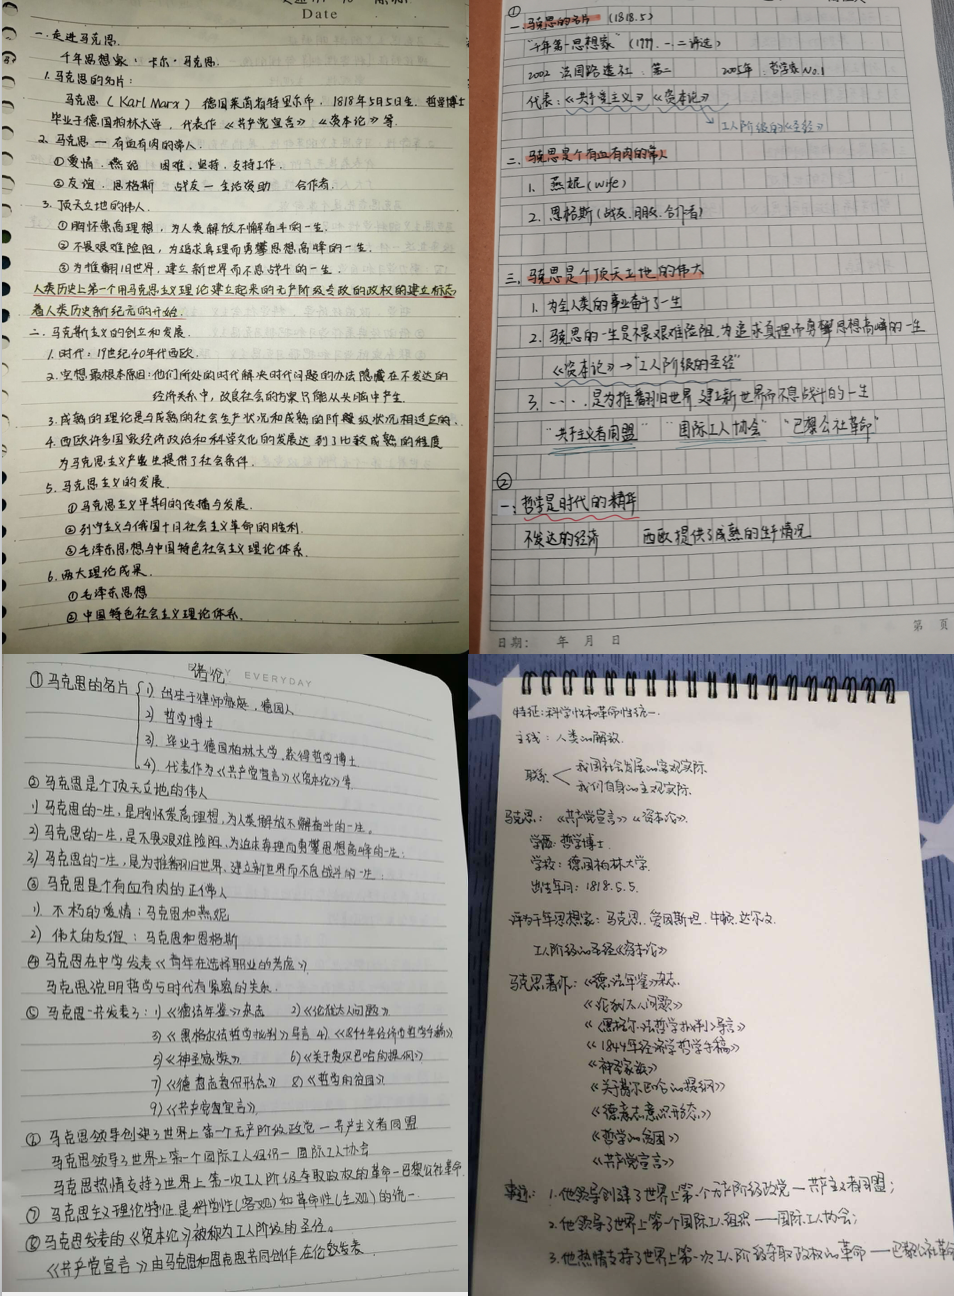 Date
一.走进马克思.
千年思想家·卡尔·马克思.
1.马克思的名片:
马克思(Karl Marx) 德国莱茵省特里尔市, 1818年5月5日生. 哲学博士
毕业于德国柏林大学, 代表作《共产党宣言》《资本论》等.
2.马克思一有血有肉的常人.
①爱情.燕妮 困难.坚持.支持工作.
②友谊.恩格斯 战友一生活援助 合作者.
3.顶天立地的伟人.
①胸怀崇高理想,为人类解放不懈奋斗的一生.
②不畏艰难险阻,为追求真理而勇攀思想高峰的一生.
③为推翻旧世界,建立新世界而不息战斗的一生.
人类历史上第一个用马克思主义理论建立起来的无产阶级专政的政权的建立标志
着人类历史新纪元的开始.
二.马克斯主义的创立和发展.
1.时代:19世纪40年代西欧.
2.空想最根本原因:他们所处的时代解决时代问题的办法隐藏在不发达的
经济关系中,改良社会的方案只能从头脑中产生
3.成熟的理论是与成熟的社会生产状况和成熟的阶级状况相适应的.
4.西欧许多国家经济政治和科学文化的发展达到了比较成熟的程度
为马克思主义产生提供了社会条件.
5.马克思主义的发展.
①马克思主义早期的传播与发展.
②列宁主义与俄国十月社会主义革命的胜利.
③毛泽东思想与中国特色社会主义理论体系.
6.两大理论成果.
①毛泽东思想
②中国特色社会主义理论体系.
①
一.马克思的名片 (1818.5)
"千年第一思想家"(1999.一.二评选)
2002 法国路透社:第二 2005年:哲学家No.1
代表:《共产党主义》《资本论》
工人阶级的《圣经》
二.马克思是个有血有肉的常人
1.燕妮(wife)
2.恩格斯(战友.朋友.合作者)
三.马克思是个顶天立地的伟大
1.为全人类的事业奋斗了一生
2.马克思的一生是不畏艰难险阻.为追求真理而勇攀思想高峰的一生
《资本论》→"工人阶级的圣经"
3.····是为推翻旧世界.建立新世界而不息战斗的一生
"共产主义者同盟" "国际工人协会" "巴黎公社革命"
②
一:哲学是时代的精华
不发达的经济 西欧提供了成熟的生产情况
第 页
日期: 年 月 日
绪论
EVERYDAY
①马克思的名片
1) 出生于律师家庭.德国人
2) 哲学博士
3) 毕业于德国柏林大学,获得哲学博士
4) 代表作为《共产党宣言》《资本论》等
②马克思是个顶天立地的伟人
1)马克思的一生,是胸怀崇高理想,为人类解放不懈奋斗的一生。
2)马克思的一生,是不畏艰难险阻,为追求真理而勇攀思想高峰的一生;
3)马克思的一生,是为推翻旧世界、建立新世界而不息战斗的一生;
③马克思是个有血有肉的正伟人
1)不朽的爱情:马克思和燕妮
2)伟大的友谊:马克思和恩格斯
④马克思在中学发表《青年在选择职业的考虑》
马克思说明哲学与时代有紧密的关系.
⑤马克思一共发表了:1)《德法年鉴》杂志 2)《论犹太人问题》
3)《黑格尔法哲学批判》导言 4)《1844年经济学哲学手稿》
5)《神圣家族》 6)《关于费尔巴哈的提纲》
7)《德意志意识形态》 8)《哲学的贫困》
9)《共产党宣言》
⑥马克思领导创建了世界上第一个无产阶级政党一共产主义者同盟
马克思领导了世界上第一个国际工人组织一国际工人协会
马克思热情支持了世界上第一次工人阶级夺取政权的革命一巴黎公社革命
⑦马克思主义理论特征是科学性(客观)和革命性(主观)的统一
⑧马克思发表的《资本论》被称为工人阶级的圣经。
《共产党宣言》由马克思和恩克思共同创作,在伦敦发表.
特征:科学性和革命性统一.
主线:人类的解放.
联系
我国社会发展的客观实际
我们自身的主观实际
马克思:《共产党宣言》《资本论》.
学历:哲学博士
学校:德国柏林大学.
出生年月:1818.5.5.
评为千年思想家:马克思.爱因斯坦.牛顿.达尔文.
工人阶级的圣经《资本论》
马克思著作:《德法年鉴》杂志.
《论犹太人问题》
《〈黑格尔法哲学批判〉导言》
《1844年经济学哲学手稿》
《神圣家族》
《关于费尔巴哈的提纲》
《德意志意识形态》
《哲学的贫困》
《共产党宣言》
事迹:1.他领导创建了世界上第一个无产阶级政党一共产主义者同盟;
2.他领导了世界上第一个国际工人组织——国际工人协会;
3.他热情支持了世界上第一次工人阶级夺取政权的革命——巴黎公社革命